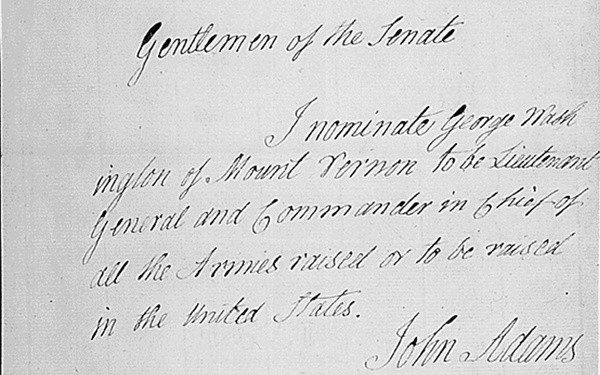 Gentlemen of the Senate
I nominate George Wash
ington of Mount Vernon to be Lieutenant
General and Commander in Chief of
all the Armies raised or to be raised
in the United States.
John Adams